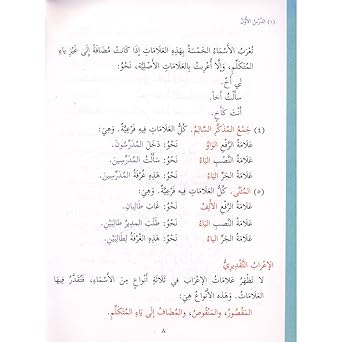 (١) الدَّرْسُ الأَوَّلُ
تُعْرَبُ الأَسْمَاءُ الخَمْسَةُ بِهَذِهِ العَلَامَاتِ إِذَا كَانَتْ مُضَافَةً إِلَى غَيْرِ يَاءِ
المُتَكَلِّمِ، وَإِلَّا أُعْرِبَتْ بِالعَلَامَاتِ الأَصْلِيَّةِ، نَحْوُ:
لِي أَخٌ.
سَأَلْتُ أَخاً.
أَنْتَ كَأَخٍ.
(٤) جَمْعُ المُذَكَّرِ السَّالِمُ. كُلُّ العَلَامَاتِ فِيهِ فَرْعِيَّةٌ. وَهِيَ:
عَلَامَةُ الرَّفْعِ الوَاوُ نَحْوُ: دَخَلَ المُدَرِّسُونَ.
عَلَامَةُ النَّصْبِ اليَاءُ نَحْوُ: سَأَلْتُ المُدَرِّسِينَ.
عَلَامَةُ الجَرِّ اليَاءُ نَحْوُ: هَذِهِ غُرْفَةُ المُدَرِّسِينَ.
(٥) المُثَنَّى. كُلُّ العَلَامَاتِ فِيهِ فَرْعِيَّةٌ. وَهِيَ:
عَلَامَةُ الرَّفْعِ الأَلِفُ نَحْوُ: غَابَ طَالِبَانِ.
عَلَامَةُ النَّصْبِ اليَاءُ نَحْوُ: طَلَبَ المُدِيرُ طَالِبَيْنِ.
عَلَامَةُ الجَرِّ اليَاءُ نَحْوُ: هَذِهِ الغُرْفَةُ لِطَالِبَيْنِ.
الإِعْرَابُ التَّقْدِيرِيُّ
لَا تَظْهَرُ عَلَامَاتُ الإِعْرَابِ فِي ثَلَاثَةِ أَنْوَاعٍ مِنَ الأَسْمَاءِ، فَتُقَدَّرُ فِيهَا
العَلَامَاتُ. وَهَذِهِ الأَنْوَاعُ هِيَ:
المَقْصُورُ، وَالمَنْقُوصُ، وَالمُضَافُ إِلَى يَاءِ المُتَكَلِّمِ.
٨